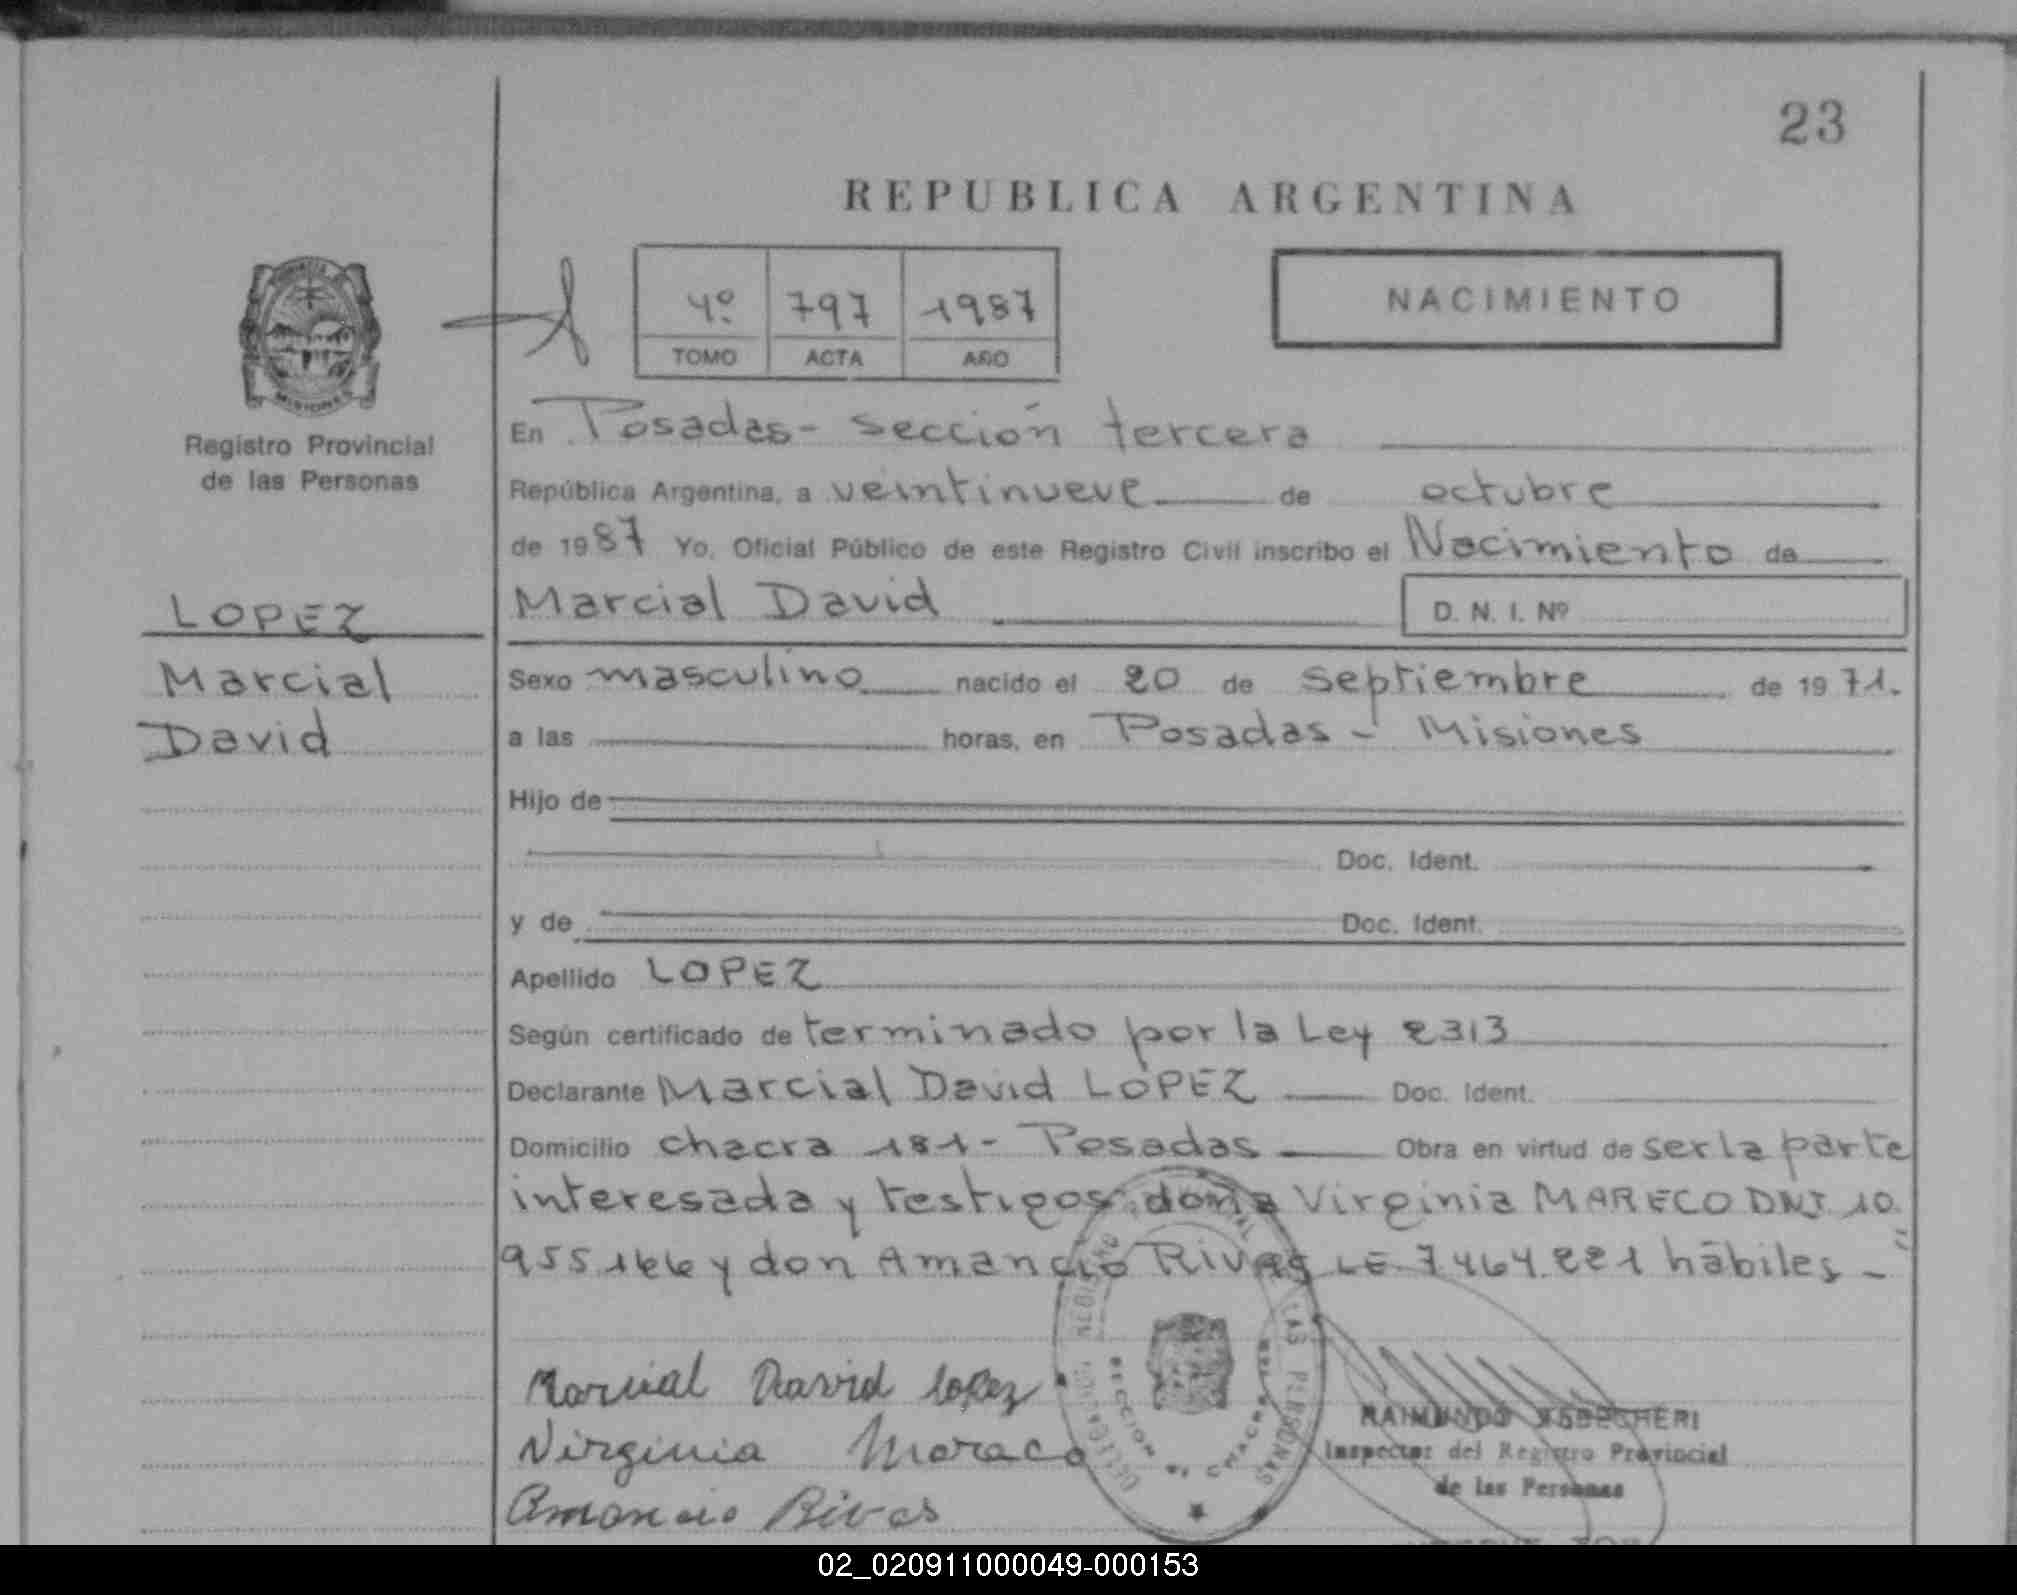 23
REPUBLICA ARGENTINA
4º 797 1987
TOMO ACTA AÑO
NACIMIENTO
MISIONES
Registro Provincial
de las Personas
LOPEZ
Marcial
David
En Posadas - sección tercera
República Argentina, a veintinueve de octubre
de 1987 Yo, Oficial Público de este Registro Civil inscribo el Nacimiento de
Marcial David D. N. I. Nº
Sexo masculino nacido el 20 de septiembre de 1971.
a las horas, en Posadas - Misiones
Hijo de
Doc. Ident.
y de Doc. Ident.
Apellido LOPEZ
Según certificado de terminado por la Ley 2313
Declarante Marcial David LOPEZ Doc. Ident.
Domicilio chacra 181 - Posadas Obra en virtud de ser la parte
interesada y testigos: doña Virginia MARECO DNI. 10.
955.166 y don Amancio Rivas LE 7464.221 hábiles -
Marcial David lopez
Virginia Mareco
Amancio Rivas
LAS PERSONAS
SECCION CHACRA
RAIMUNDO
Inspector del Registro Provincial
de las Personas
02_020911000049-000153